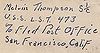 Melvin Thompson S½
U.S.S. L.S.T. 473
To Fleet Post Office
San Francisco, Calif.